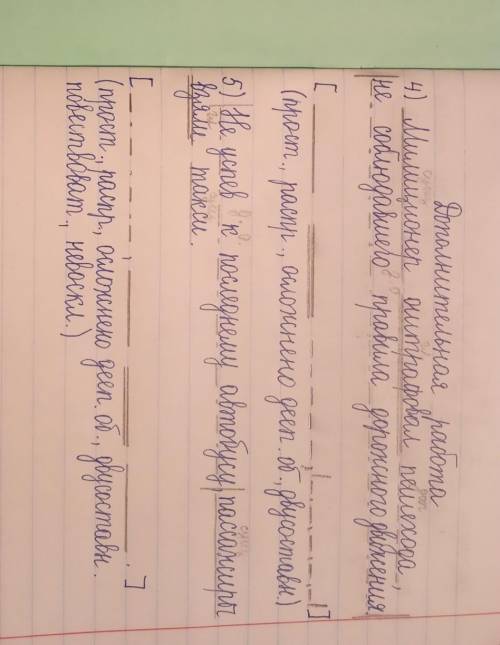 Дополнительная работа
4) Милиционер оштрафовал пешехода,
не соблюдавшего правила дорожного движения.
[ ]
(прост., распр., осложнено дееп. об., двусоставн.)
5) Не успев к последнему автобусу, пассажиры
взяли такси.
[ , . ]
(прост., распр., осложнено дееп. об., двусоставн.
повествоват., невоскл.)